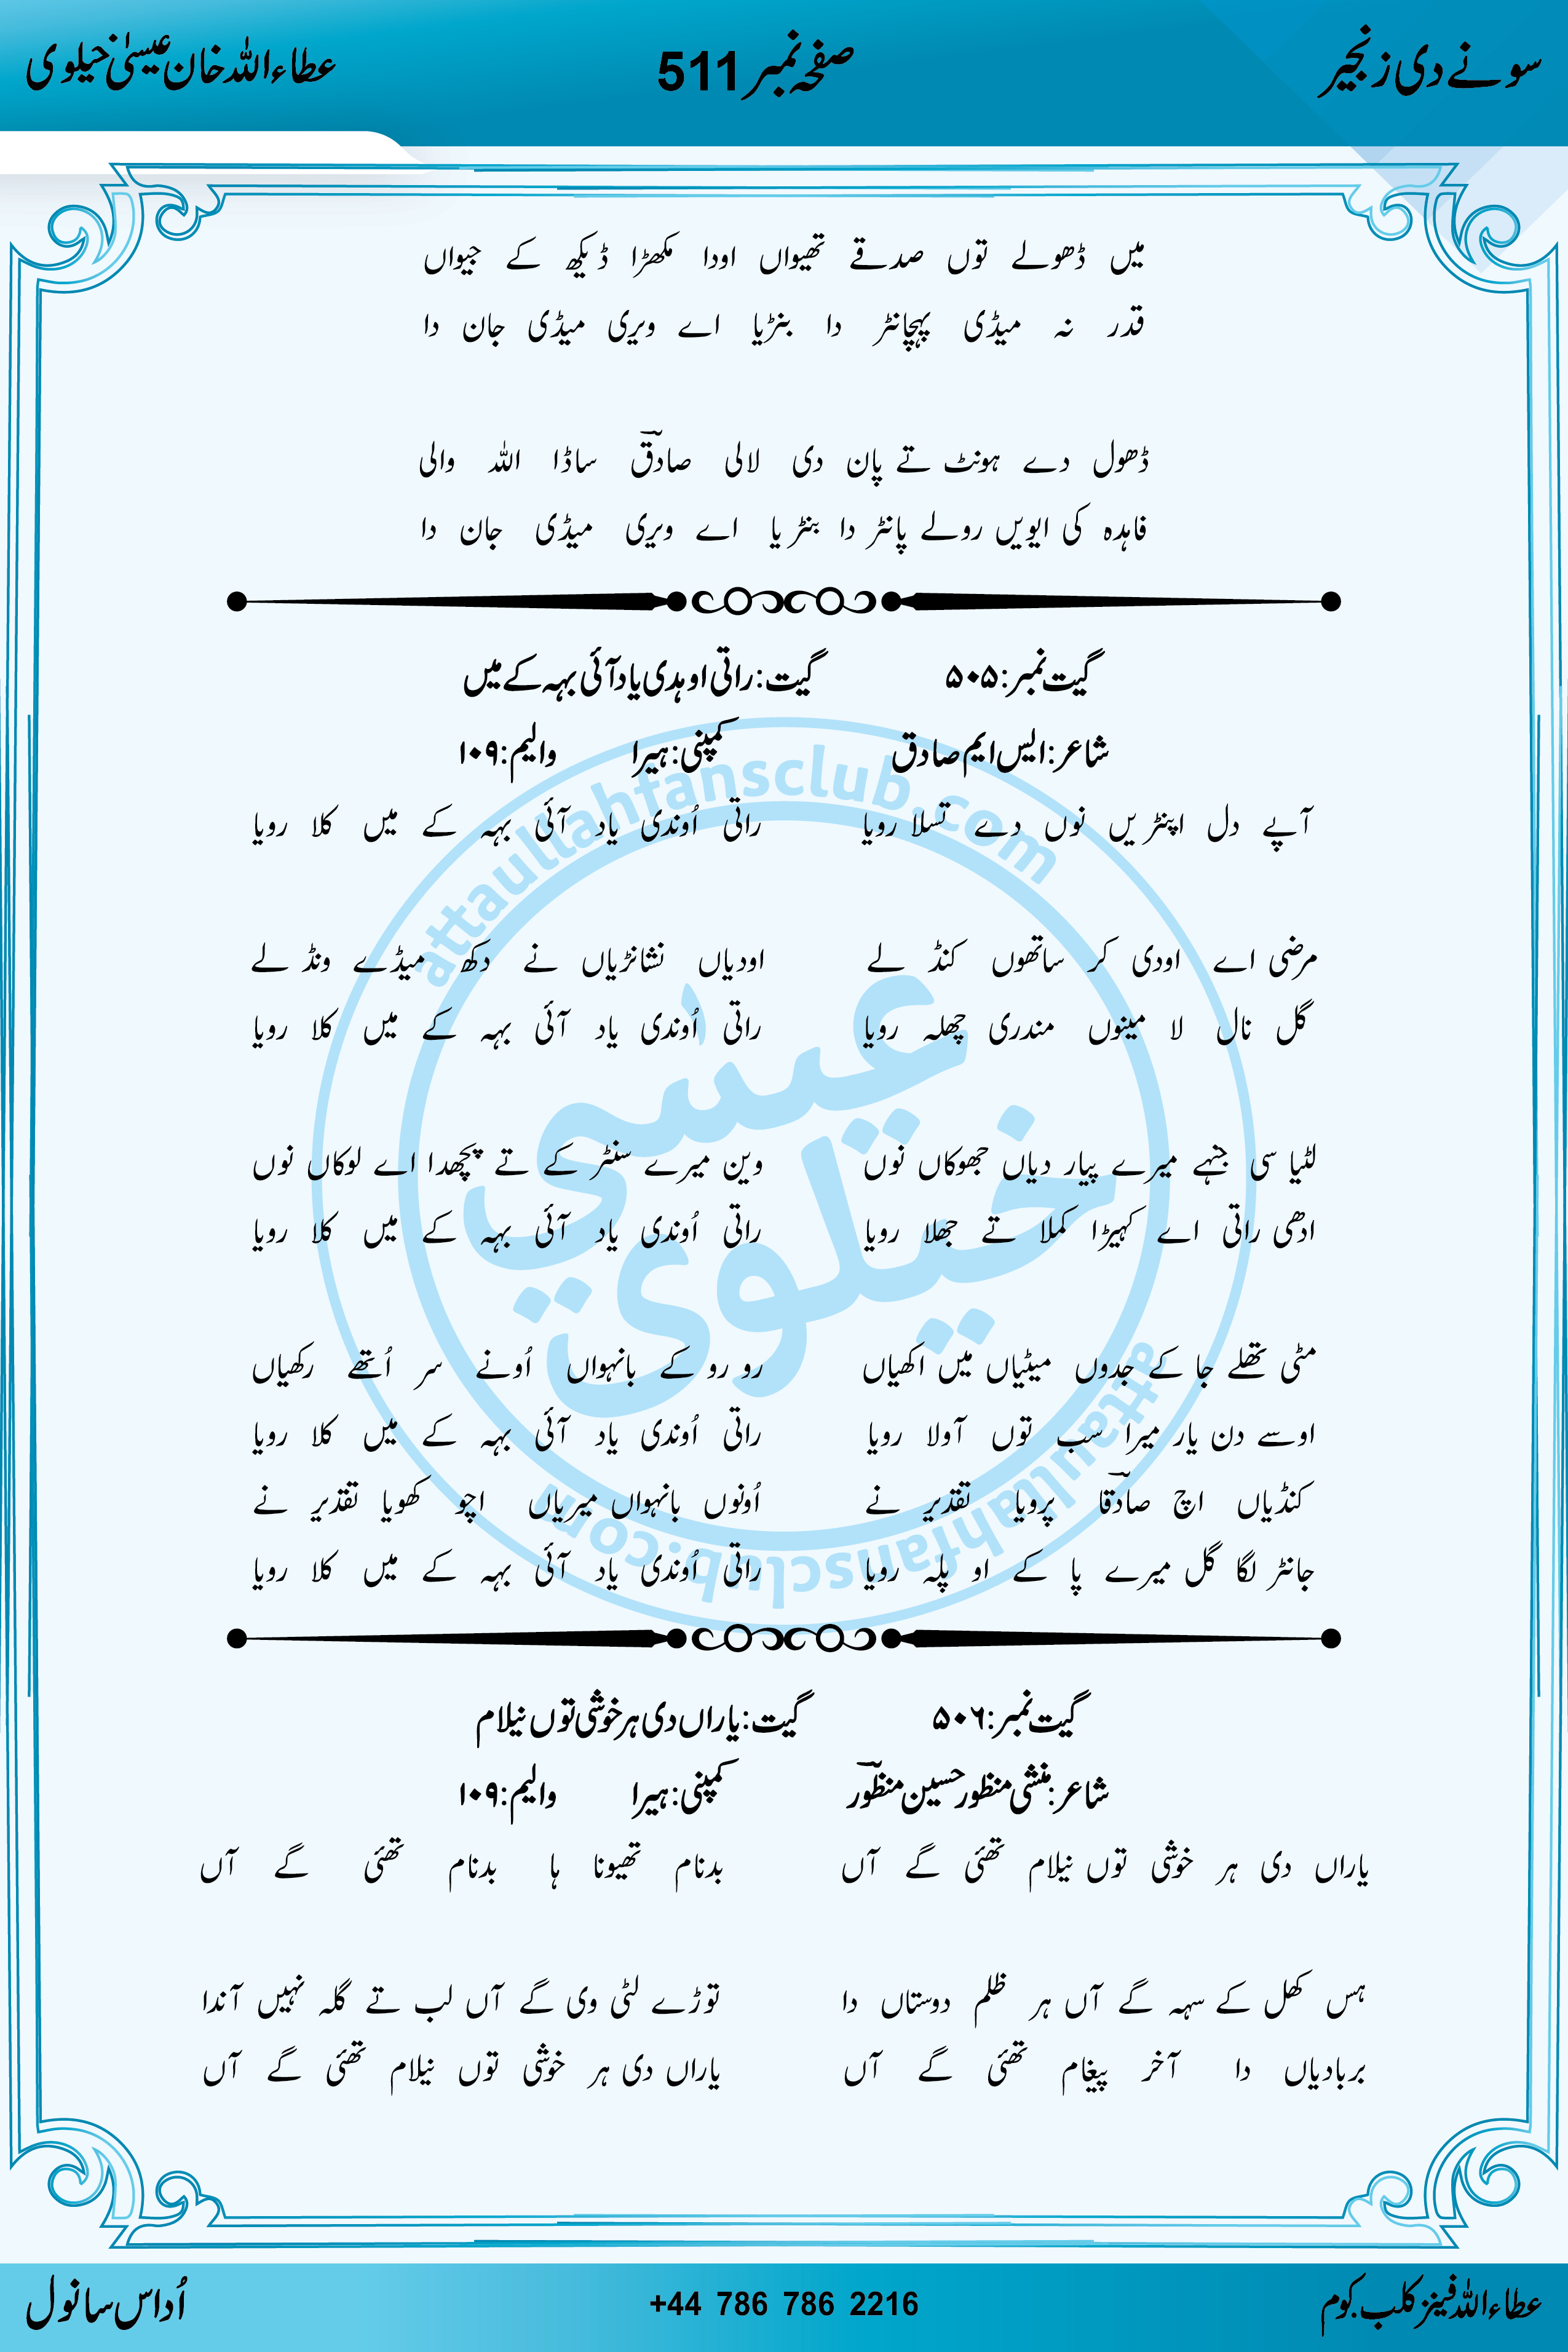 سونے دی زنجیر صفحہ نمبر 511 عطاء اللہ خان عیسیٰ خیلوی
میں ڈھولے توں صدقے تھیواں اودا مکھڑا ڈیکھ کے جیواں
قدر نہ میڈی پہچانڑ دا بنڑیا اے ویری میڈی جان دا
ڈھول دے ہونٹ تے پان دی لالی صادقؔ ساڈا اللہ والی
فاہدہ کی ایویں رولے پانڑ دا بنڑیا اے ویری میڈی جان دا
گیت نمبر: ۵۰۵ گیت: راتی اوہدی یاد آئی بہہ کے میں
شاعر: ایس ایم صادق کمپنی: ہیرا والیم: ۱۰۹
آپے دل اپنڑیں نوں دے تسلا رویا راتی اُوندی یاد آئی بہہ کے میں کلا رویا
مرضی اے اودی کر ساتھوں کنڈ لے اودیاں نشانڑیاں نے دکھ میڈے ونڈ لے
گل نال لا مینوں مندری چھلہ رویا راتی اُوندی یاد آئی بہہ کے میں کلا رویا
لٹیا سی جنہے میرے پیار دیاں جھوکاں نوں وین میرے سنڑ کے تے پچھدا اے لوکاں نوں
ادھی راتی اے کہیڑا کملا تے جھلا رویا راتی اُوندی یاد آئی بہہ کے میں کلا رویا
مٹی تھلے جا کے جدوں میٹیاں میں اکھیاں رو رو کے بانہواں اُونے سر اُتھے رکھیاں
اوسے دن یار میرا سب توں آولا رویا راتی اُوندی یاد آئی بہہ کے میں کلا رویا
کنڈیاں اچ صادقؔا پرویا تقدیر نے اُونوں بانہواں میریاں اچو کھویا تقدیر نے
جانڑ لگا گل میرے پا کے او پلہ رویا راتی اُوندی یاد آئی بہہ کے میں کلا رویا
گیت نمبر: ۵۰۶ گیت: یاراں دی ہر خوشی توں نیلام
شاعر: منشی منظور حسین منظورؔ کمپنی: ہیرا والیم: ۱۰۹
یاراں دی ہر خوشی توں نیلام تھئی گے آں بدنام تھیونا ہا بدنام تھئی گے آں
ہس کھل کے سہہ گے آں ہر ظلم دوستاں دا توڑے لٹی وی گے آں لب تے گلہ نہیں آندا
بربادیاں دا آخر پیغام تھئی گے آں یاراں دی ہر خوشی توں نیلام تھئی گے آں
attaullahfansclub.com
عیسیٰ
خیلوی
attaullahfansclub.com
عطاء اللہ فینز کلب.کوم +44 786 786 2216 اُداس سانول